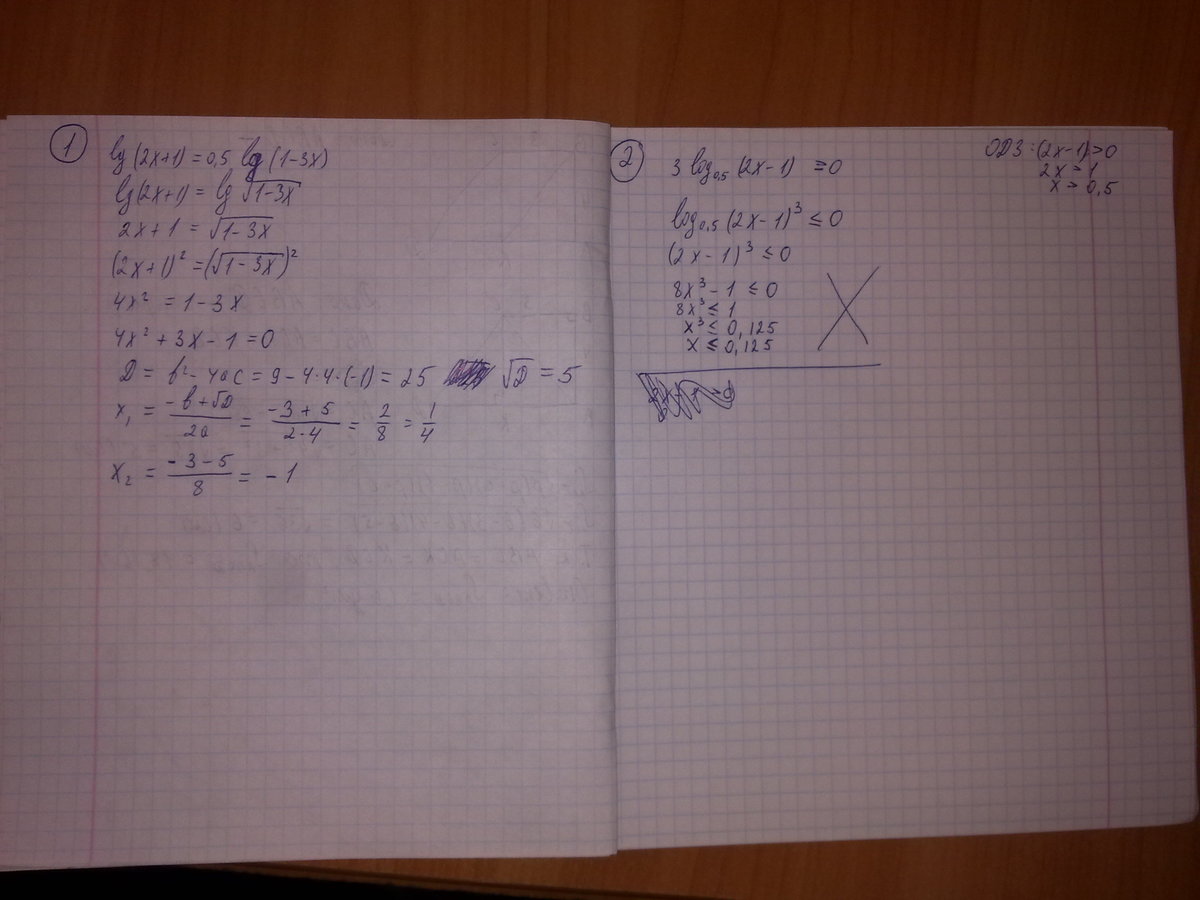 1
lg (2x+1) = 0,5 lg (1-3x)
lg (2x+1) = lg √(1-3x)
2x+1 = √(1-3x)
(2x+1)² = (√(1-3x))²
4x² = 1-3x
4x² + 3x - 1 = 0
D = b² - 4ac = 9 - 4·4·(-1) = 25 √D = 5
x₁ = (-b+√D)/2a = (-3+5)/(2·4) = 2/8 = 1/4
x₂ = (-3-5)/8 = -1
2
3 log₀,₅ (2x-1) ≥ 0
ОДЗ: (2x-1) > 0
2x > 1
x > 0,5
log₀,₅ (2x-1)³ ≤ 0
(2x-1)³ ≤ 0
8x³ - 1 ≤ 0
8x³ ≤ 1
x³ ≤ 0,125
x ≤ 0,125